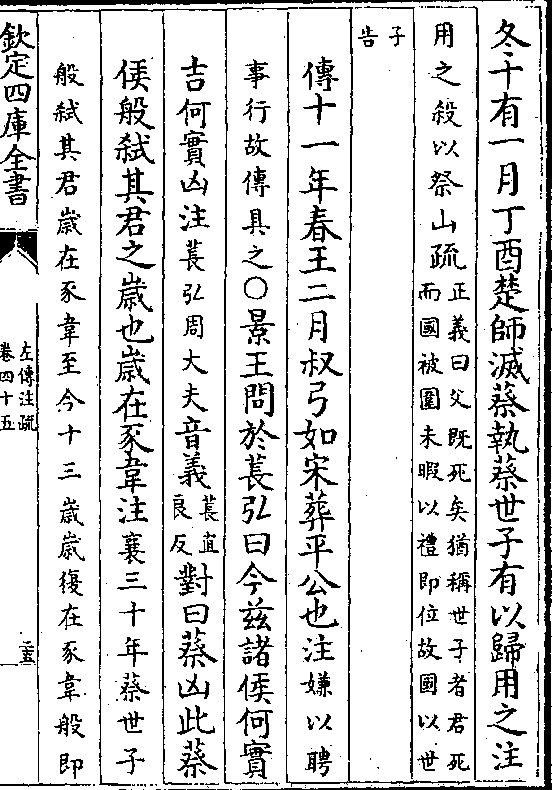 冬十有一月丁酉楚師滅蔡執蔡世子有以歸用之注
用之殺以祭山疏正義曰父既死矣猶稱世子者君死
而國被圍未暇以禮即位故國以世
子
告
傳十一年春王二月叔弓如宋葬平公也注嫌以聘
事行故傳具之○景王問於萇弘曰今兹諸侯何實
吉何實凶注萇弘周大夫音義萇直
良反對曰蔡凶此蔡
侯般弑其君之歲也歲在豕韋注襄三十年蔡世子
般弑其君歲在豕韋至今十三歲歲復在豕韋般即
欽定四庫全書
左傳注疏
卷四十五
二五